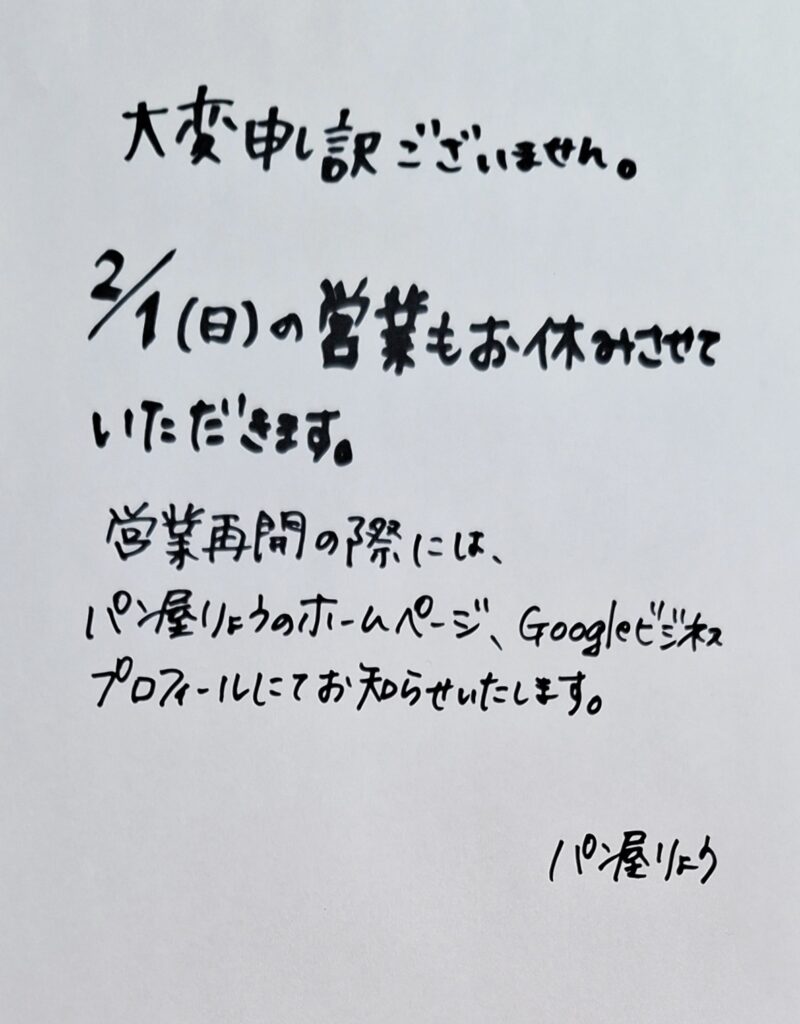 大変申し訳ございません。
2/1(日)の営業もお休みさせて
いただきます。
営業再開の際には、
パン屋りょうのホームページ、Googleビジネス
プロフィールにてお知らせいたします。
パン屋りょう